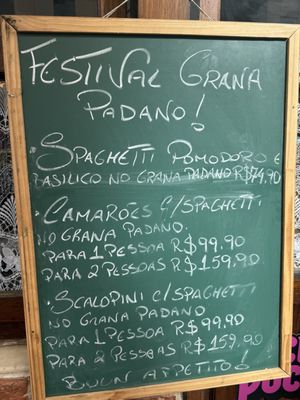 FESTIVAL GRANA
PADANO!
• SPAGHETTI POMODORO E
BASILICO NO GRANA PADANO R$74,90
• CAMARÕES C/SPAGHETTI
NO GRANA PADANO.
PARA 1 PESSOA R$99,90
PARA 2 PESSOAS R$159,90
• SCALOPINI C/SPAGHETTI
NO GRANA PADANO
PARA 1 PESSOA R$99,90
PARA 2 PESSOAS R$159,90
BUON APPETITO!